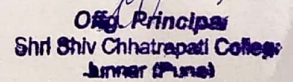 Offg. Principal
Shri Shiv Chhatrapati College
Junnar (Pune)